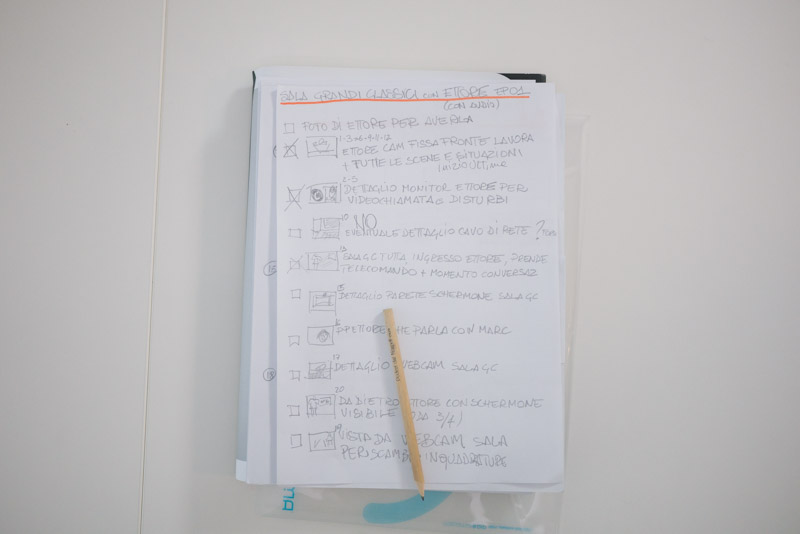 SALA GRANDI CLASSICI CON ETTORE EP01
(CON AUDIO)
FOTO DI ETTORE PER AVERLA
ETTORE CAM FISSA FRONTE LAVORA
+ TUTTE LE SCENE E SITUAZIONI
2-3
DETTAGLIO MONITOR ETTORE PER
VIDEOCHIAMATA DISTURBI
10 NO
EVENTUALE DETTAGLIO CAVO DI RETE ?
SALA GC TUTTA, INGRESSO ETTORE, PRENDE
TELECOMANDO + MOMENTO CONVERSAZ
15
DETTAGLIO PARETE SCHERMONE SALA GC
ETTORE CHE PARLA CON MARC
17
DETTAGLIO WEBCAM SALA GC
20
DA DIETRO ETTORE CON SCHERMONE
VISIBILE (DA 3/4)
VISTA DA WEBCAM SALA
PER SCAMBI INQUADRATURE